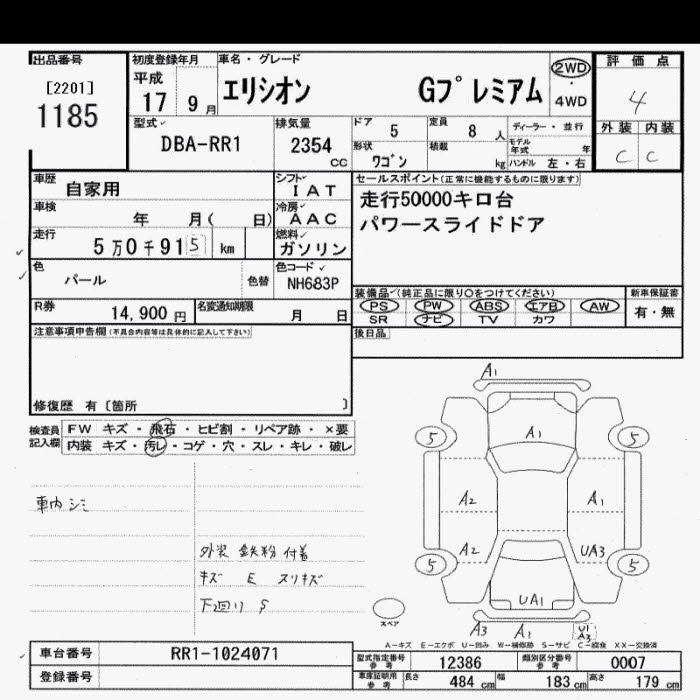 出品番号 初度登録年月 車名・グレード 2WD・4WD 評価点
[2201] 平成
1185 17 9月 エリシオン Gプレミアム 4
型式 DBA-RR1 排気量 2354 cc ドア 5 定員 8 人 ディーラー・並行 外装 内装
形状 ワゴン 積載 kg モデル年式 年 ハンドル 左・右 C C
車歴 自家用 シフト IAT セールスポイント(正常に機能するものに限ります)
車検 年 月( 日) 冷房 AAC 走行50000キロ台
走行 5万0千915 km 燃料 ガソリン パワースライドドア
色 パール 色替 色コード NH683P
装備品(純正品に限り○をつけてください) 新車保証書
R券 14,900 円 名変通知期限 月 日 PS PW ABS エアB AW 有・無
SR ナビ TV カワ
注意事項申告欄(不具合内容等は具体的に記入して下さい) 後日品
修復歴 有〔箇所 〕
検査員記入欄 FW キズ・飛石・ヒビ割・リペア跡・×要
内装 キズ・汚レ・コゲ・穴・スレ・キレ・破レ
車内シミ
外装 鉄粉 付着
キズ E スリキズ
下廻り S
A1
5 A1 5
A2 A1
A2 UA3
5 5
UA1
スペア
A3 A1 U1 A3
A-キズ E-エクボ U-凹み W-補修跡 S-サビ C-腐食 XX-交換済
車台番号 RR1-1024071 型式指定番号 参考 12386 類別区分番号 参考 0007
登録番号 車庫証明用 参考 長さ 484 cm 幅 183 cm 高さ 179 cm